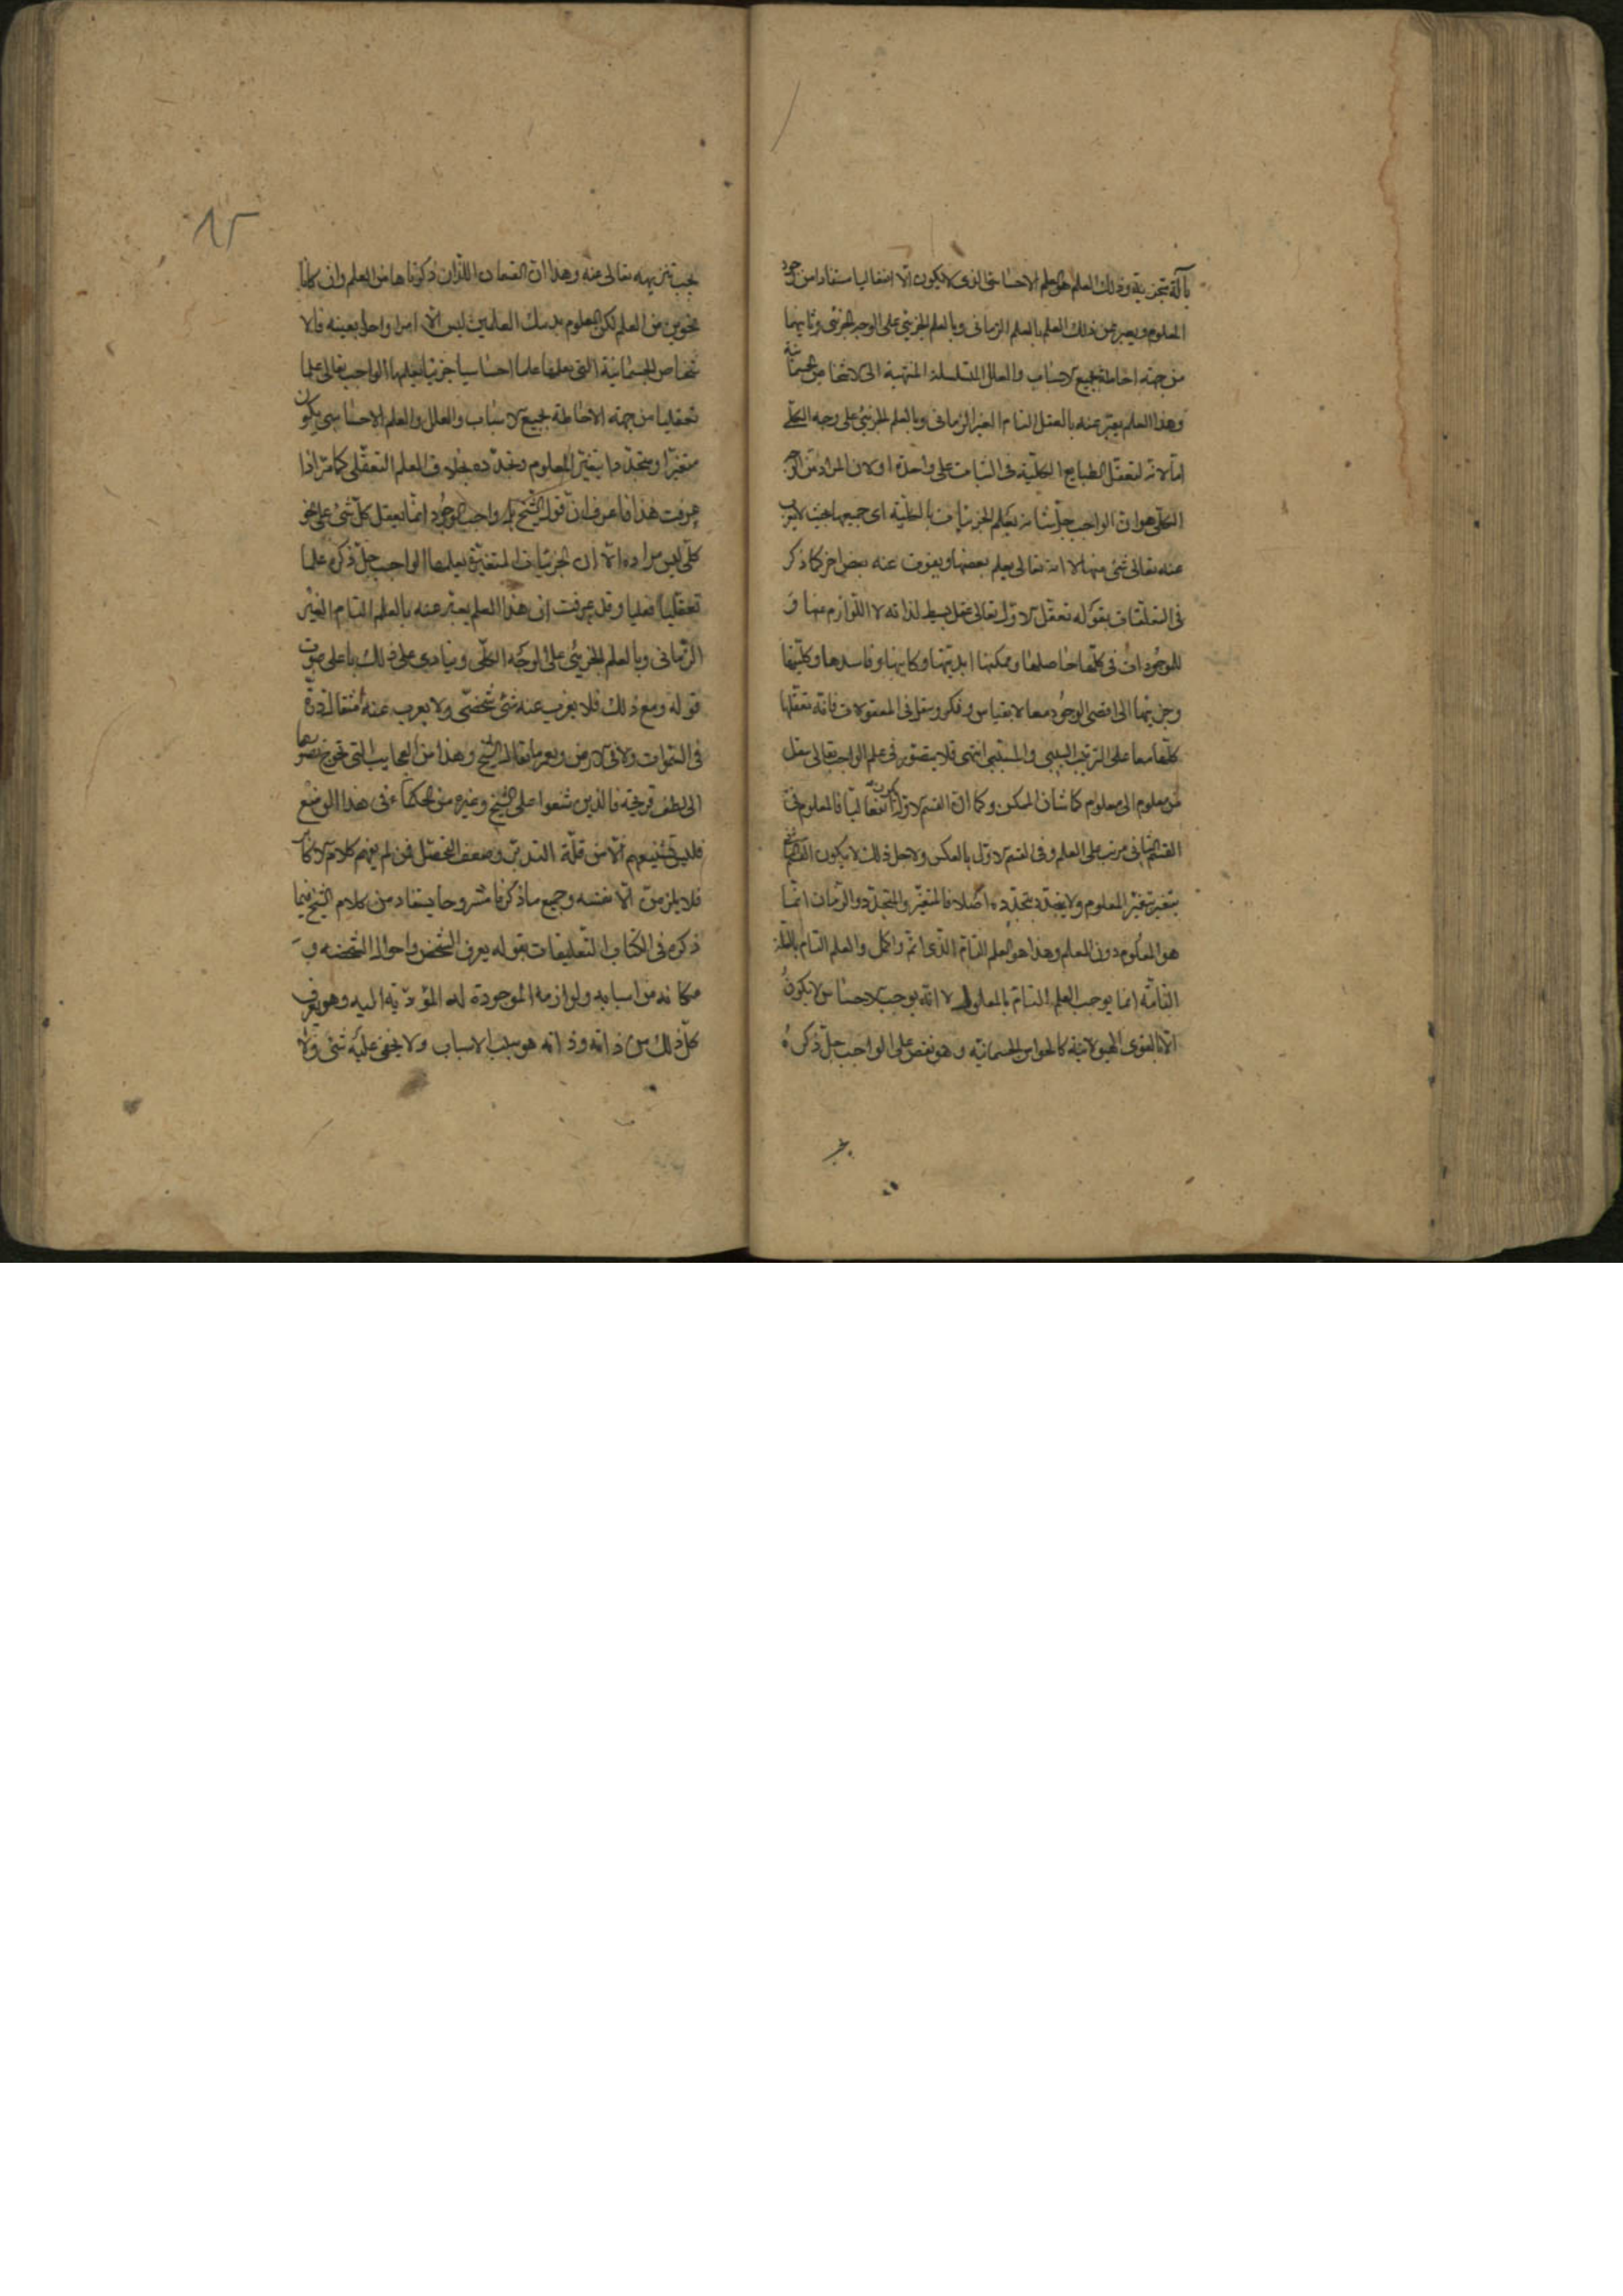 بآلة متجزية وذلك العلم هو العلم الاحساسى الذى لا يكون الا انفعاليا مستفادا من وجود
المعلوم ويعبر عن ذلك العلم بالعلم الزمانى وبالعلم الجزئى على الوجه الجزئى وثانيهما
من جهة احاطة بجميع الاسباب والعلل المتسلسلة المنتهية الى الاشخاص الجسمانية
وهذا العلم يعبر عنه بالعقل التام الغير الزمانى وبالعلم الجزئى على وجه الكلى
اما لانه لتعقل الطبايع الكلية فى الثبات على واحدة او لان المراد من الوجه
الكلى هو ان الواجب جل شانه يعلم الجزئيات بالكلية اى جميعها بحيث لا يعزب
عنه تعالى شئ منها لا انه تعالى يعلم بعضها ويفوت عنه بعض اخر كما ذكر
فى التعلقات بقوله تعقل الاول تعالى عقل بسيط لذاته لا اللوازم منها و
للموجودات فى كلها حاصلها وممكنها ابديتها وكاينها وفاسدها وكليتها
وجزيتها الى اقصى الوجود معا لا بقياس وفكر وينقل فى المعقولات فانه تعقلها
كلها معا على الترتيب السببى والمسببى انتهى فلا يتصور فى علم الواجب تعالى ينقل
من معلوم الى معلوم كما شان الممكن وكما ان القسم الاول يكون انفعاليا فالمعلوم فى
القسم الثانى مرتب على العلم وفى القسم الاول بالعكس ولاجل ذلك لا يكون العلم
يتغير بتغير المعلوم ولا يتجدد بتجدده اصلا فالمتغير والمتجدد والزمان انما
هو المعلوم دون العلم وهذا هو العلم التام الذى اتم واكمل والعلم التام بالعلة
التامة انما يوجب العلم التام بالمعلول لا انه يوجب الاحساس لا يكون
الا بالقوى الهيولانية كالحواس الجسمانية وهو نقص على الواجب جل ذكره
يجب تنزيهه تعالى عنه وهذا ان القسمان اللذان ذكرناهما من العلم وان كانا
نحوين من العلم لكن المعلوم بذينك العلمين ليس الا امرا واحدا بعينه فالا
شخاص الجسمانية التى يعلمها علما احساسيا جزئيا يعلمها الواجب تعالى علما
تعقليا من جهة الاحاطة لجميع الاسباب والعلل والعلم الاحساسى يكون
متغيرا ومتجددا بتغير المعلوم وتجدده بخلاف العلم التعقلى كما مر اذا
عرفت هذا فاعرف ان قول الشيخ بل واجب الوجود انما يعقل كل شئ على نحو
كلى ليس مراده الا ان الجزئيات المتغيرة يعلمها الواجب جل ذكره علما
تعقليا فعليا وقد عرفت ان هذا العلم يعبر عنه بالعلم التام الغير
الزمانى وبالعلم الجزئى على الوجه الكلى وينادى على ذلك باعلى صوت
قوله ومع ذلك فلا يعزب عنه شئ شخصى ولا يعزب عنه مثقال ذرة
فى السموات ولا فى الارض وهذا من العجايب التى تحوج تصورها
الى لطف قريحة فالذين شنعوا على الشيخ وغيره من الحكماء فى هذا الموضع
فليس تشنيعهم الا من قلة التدبر وضعف التحصل فمن لم يفهم كلام الاكابر
فلا يلومن الا نفسه وجميع ما ذكرنا مشروحا يستفاد من كلام الشيخ فيما
ذكره فى الكتاب التعليقات بقوله يعرف الشخص واحواله الشخصيه و
مكانه من اسبابه ولوازمه الموجودة له المؤدية اليه وهو يعرف
كل ذلك من ذاته وذاته هو سبب الاسباب ولا يخفى عليه شئ ولا